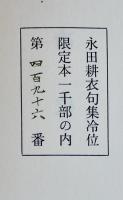 永田耕衣句集冷位
限定本一千部の内
第 四百九十六 番